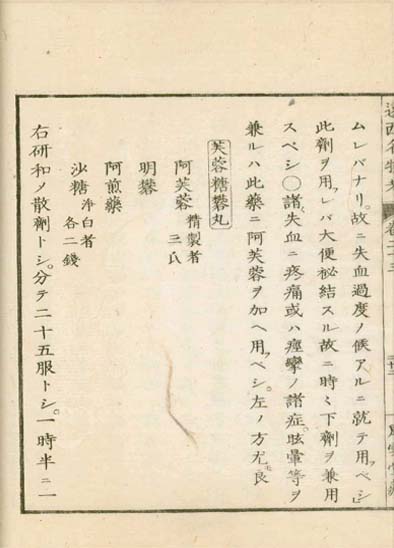 ムレバナリ。故ニ失血過度ノ候アルニ就テ用フベシ
此劑ヲ用フレバ大便祕結スル故ニ時々下劑ヲ兼用
スベシ〇諸失血ニ疼痛或ハ痙攣ノ諸症。眩暈等ヲ
兼ルハ此藥ニ阿芙蓉ヲ加ヘ用フベシ。左ノ方尤モ良
芙蓉糖礬丸
阿芙蓉 精製者 三氏
明礬
阿煎藥
沙糖 淨白者 各二錢
右研和ノ散劑トシ。分テ二十五服トシ。一時半ニ一